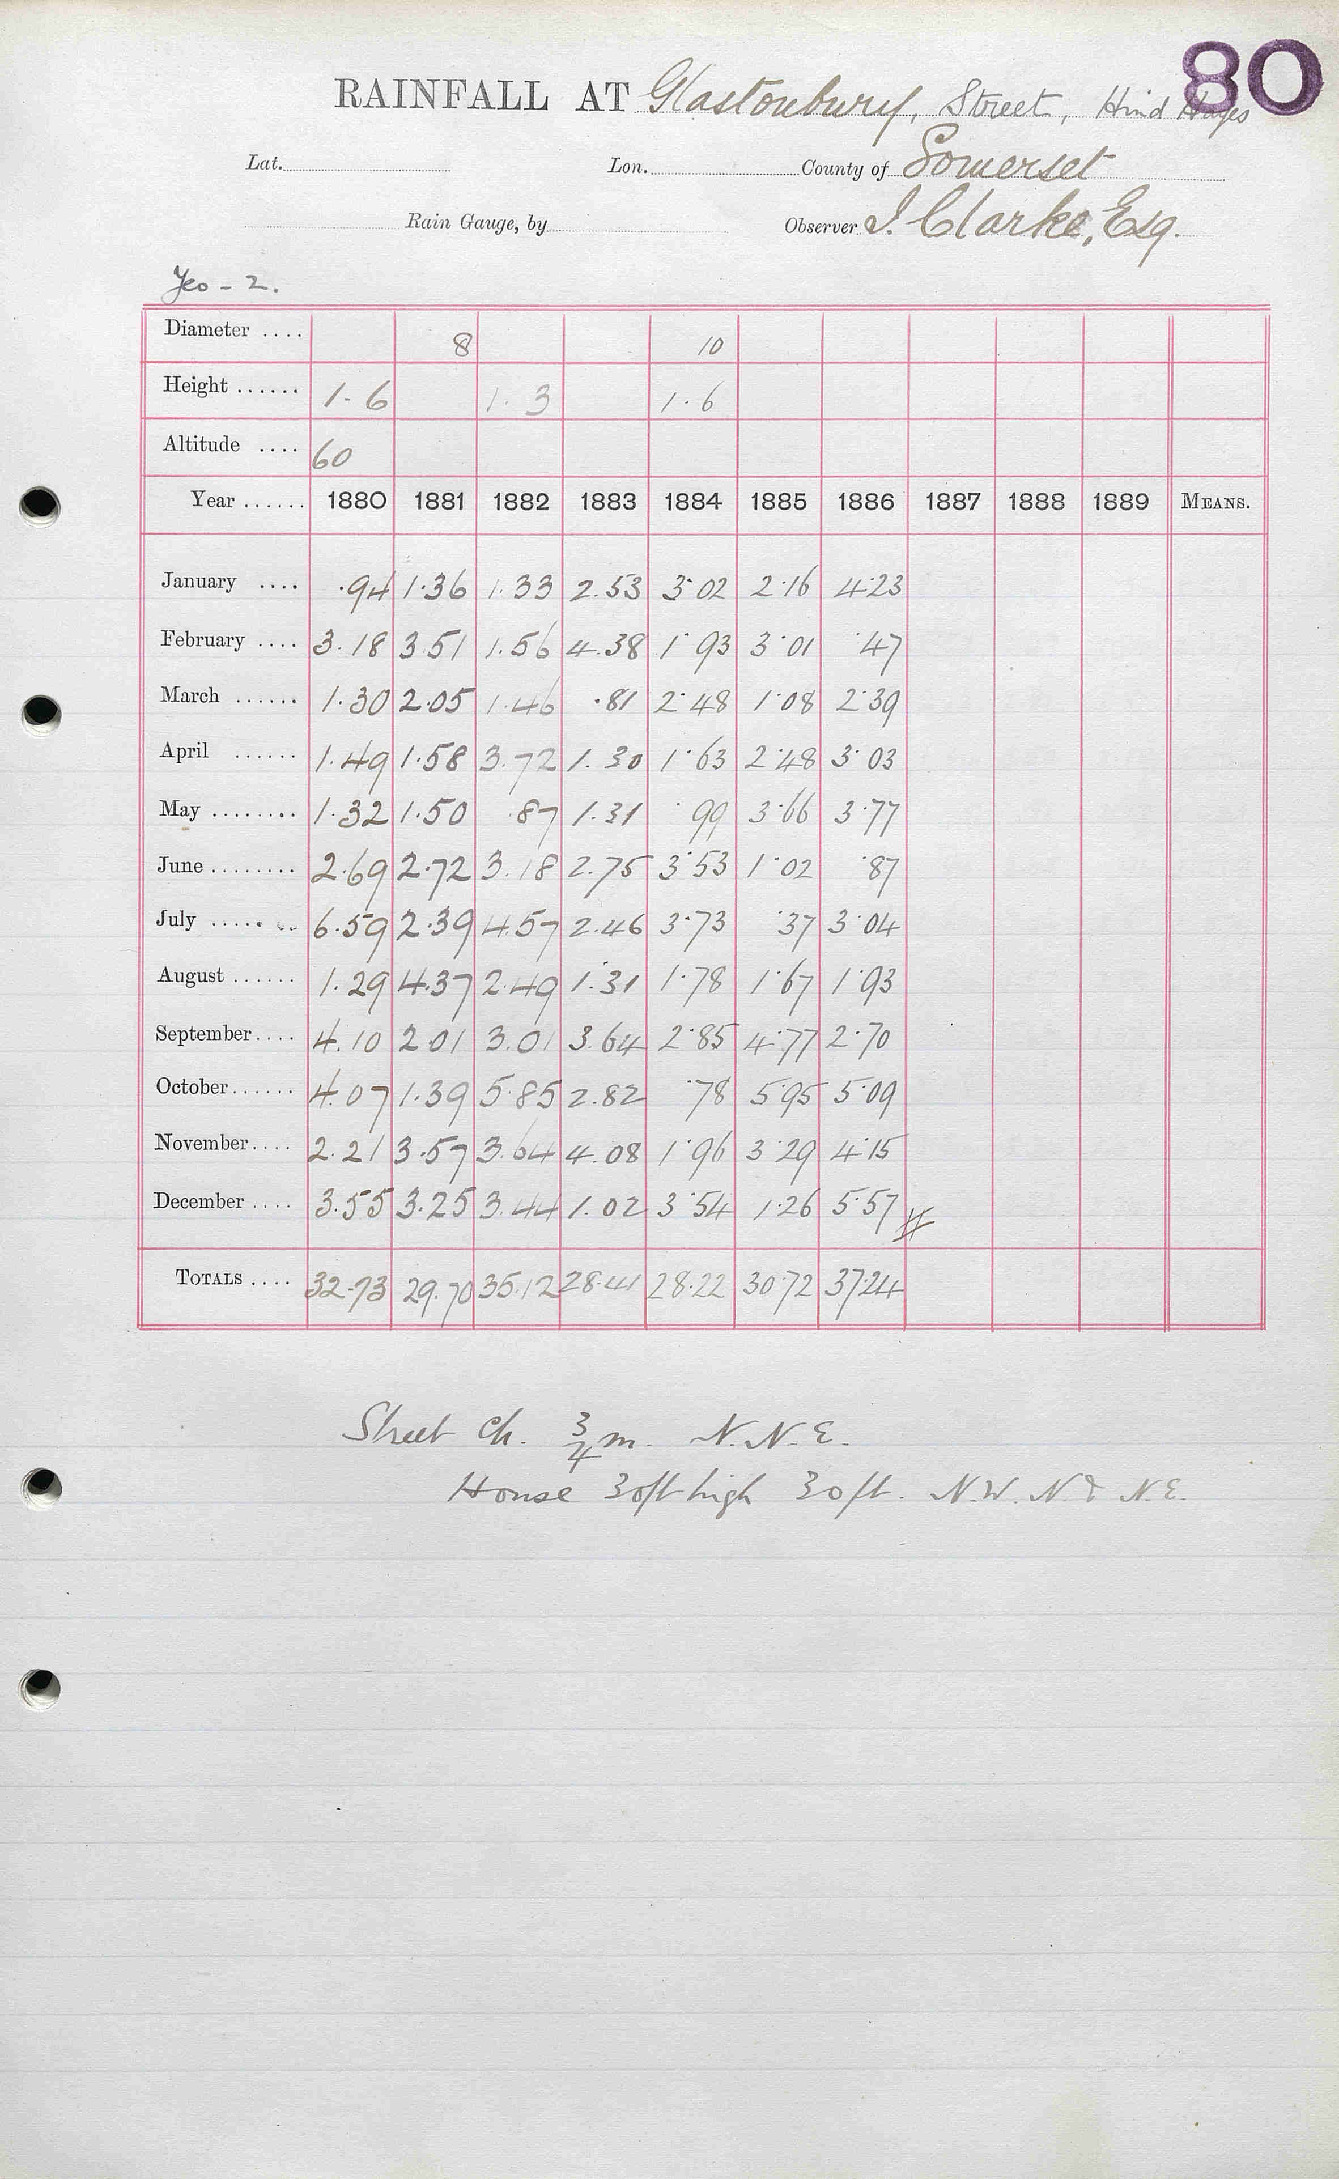 80
RAINFALL AT Glastonbury, Street, Hind Hayes
Lat. Lon. County of Somerset
Rain Gauge, by Observer J. Clarke, Esq.
Yeo - 2.
Diameter .... 8 10
Height ...... 1.6 1.3 1.6
Altitude .... 60
Year ...... 1880 1881 1882 1883 1884 1885 1886 1887 1888 1889 MEANS.
January .... .94 1.36 1.33 2.53 3.02 2.16 4.23
February .... 3.18 3.51 1.56 4.38 1.93 3.01 .47
March ...... 1.30 2.05 1.46 .81 2.48 1.08 2.39
April ...... 1.49 1.58 3.72 1.30 1.63 2.48 3.03
May ........ 1.32 1.50 .87 1.31 .99 3.66 3.77
June ........ 2.69 2.72 3.18 2.75 3.53 1.02 .87
July ........ 6.59 2.39 4.57 2.46 3.73 .37 3.04
August ...... 1.29 4.37 2.49 1.31 1.78 1.67 1.93
September .... 4.10 2.01 3.01 3.64 2.85 4.77 2.70
October ...... 4.07 1.39 5.85 2.82 .78 5.95 5.09
November .... 2.21 3.57 3.64 4.08 1.96 3.29 4.15
December .... 3.55 3.25 3.44 1.02 3.54 1.26 5.57
TOTALS .... 32.73 29.70 35.12 28.41 28.22 30.72 37.24
Street Ch. 3/4 m. N.N.E.
House 30ft high 30ft. N.W. N & N.E.